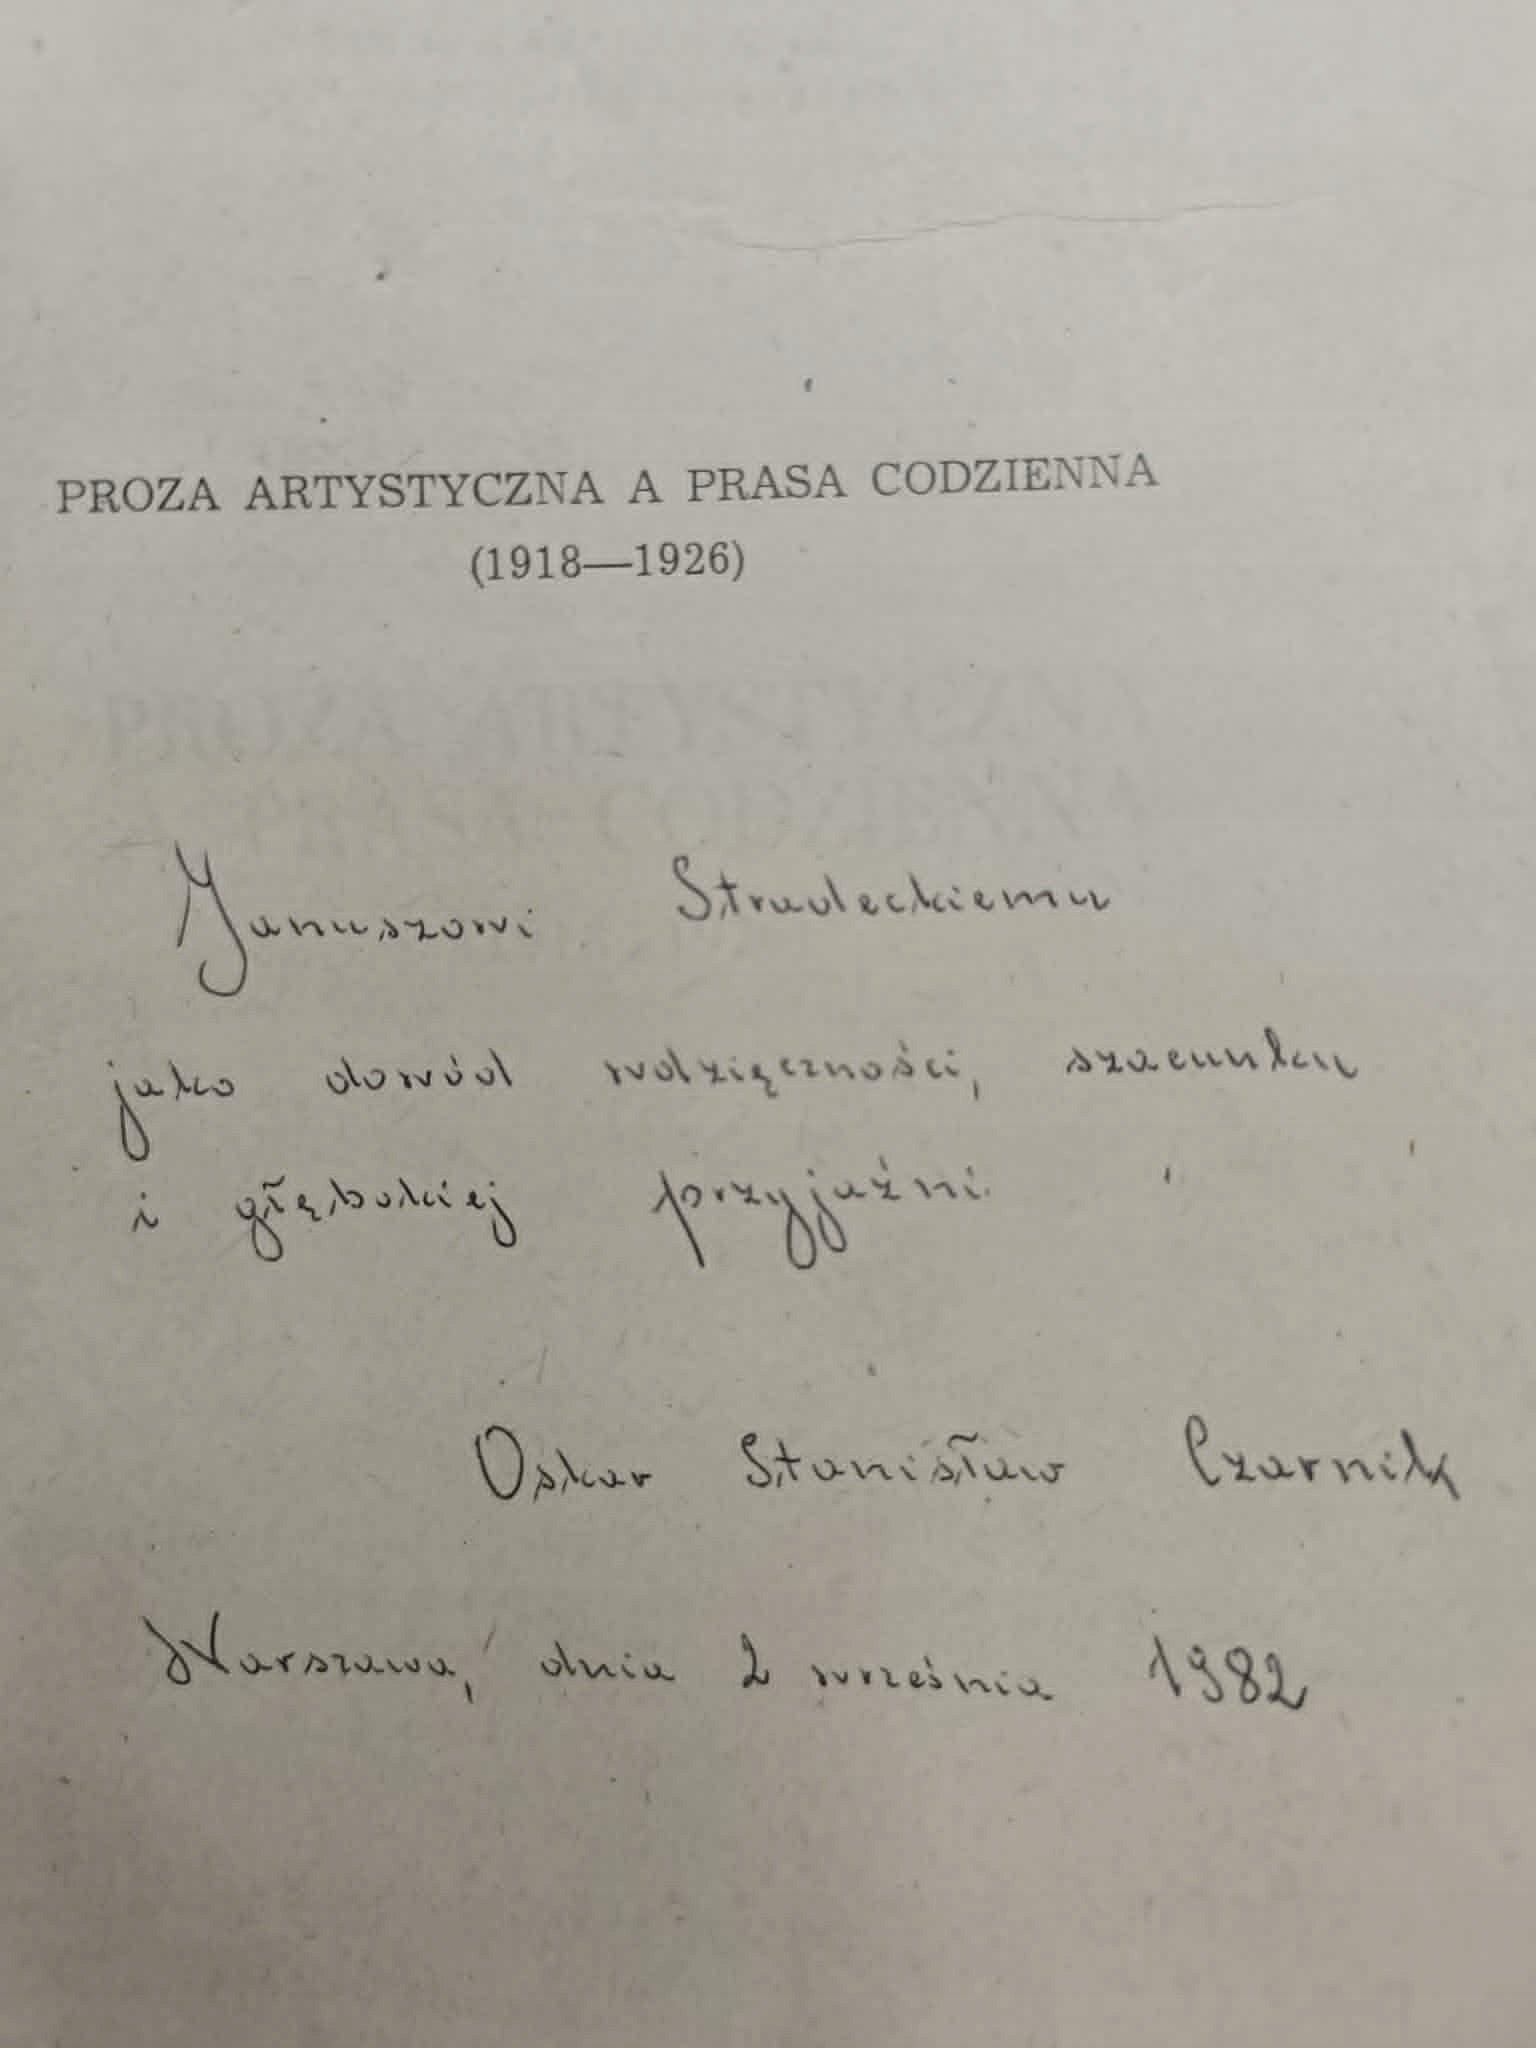 PROZA ARTYSTYCZNA A PRASA CODZIENNA
(1918—1926)
PROZA ARTYSTYCZNA
A PRASA CODZIENNA
Januszowi Stradeckiemu
jako dowód wdzięczności, szacunku
i głębokiej przyjaźni.
Oskar Stanisław Czarnik
Warszawa, dnia 2 września 1982